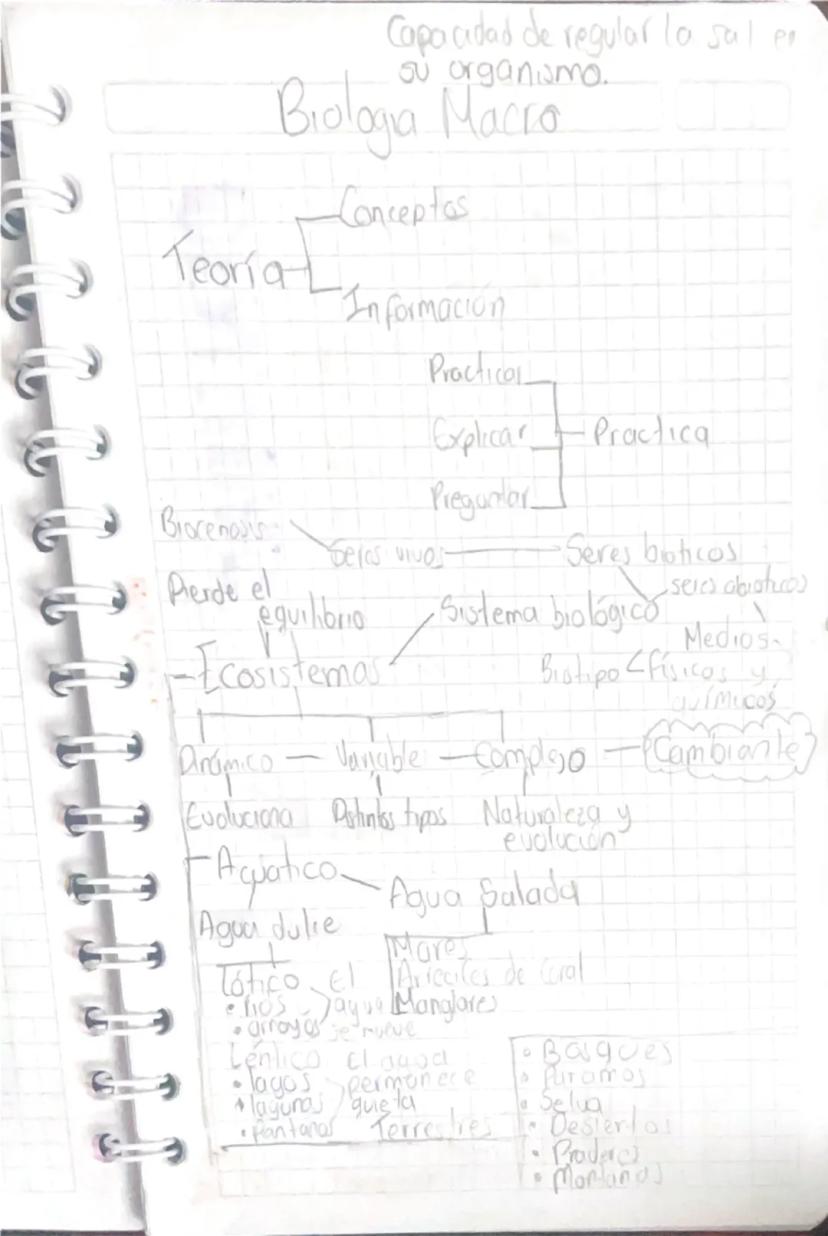 Capacidad de regular la sal en
su organismo.
Biologia Macro
Conceptos
Teoría
Información
Practicar
Explicar
Practica
Preguntar
Biocenosis
Seres vivos
Seres bioticos
seres abioticos
Pierde el
equilibrio
Sistema biológico
Medios
Ecosistemas
Biotipo < físicos y
químicos
Dinámico — Variable — Complejo — Cambiante
Evoluciona
Distintos tipos
Naturaleza y
evolución
Acuatico
Agua Salada
Agua dulce
Mares
Arrecifes de Coral
Manglares
Lótico El
• rios agua
• arroyos se mueve
Léntico El agua
• lagos permanece
• lagunas quieta
• Pantanos
Terrestres
• Bosques
• Paramos
• Selva
• Desiertos
• Praderas
• Montañas